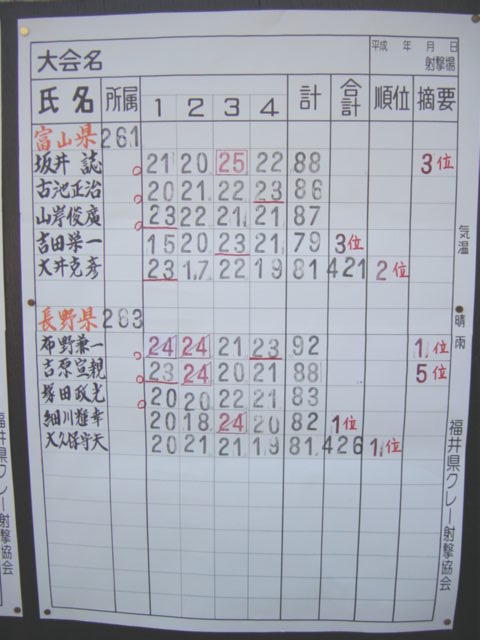 大会名
平成 年 月 日
射撃場
氏名 所属 1 2 3 4 計 合計 順位 摘要
富山県 261
坂井 誌 21 20 25 22 88 3位
古池正治 20 21 22 23 86
山岸俊廣 23 22 21 21 87
吉田栄一 15 20 23 21 79 3位
大井克彦 23 17 22 19 81 421 2位
長野県 263
布野兼一 24 24 21 23 92 1位
吉原宣親 23 24 20 21 88 5位
塚田政光 20 20 22 21 83
細川雄幸 20 18 24 20 82 1位
大久保守夫 20 21 21 19 81 426 1位
気温
晴 雨
福井県クレー射撃協会
福井県クレー射撃協会